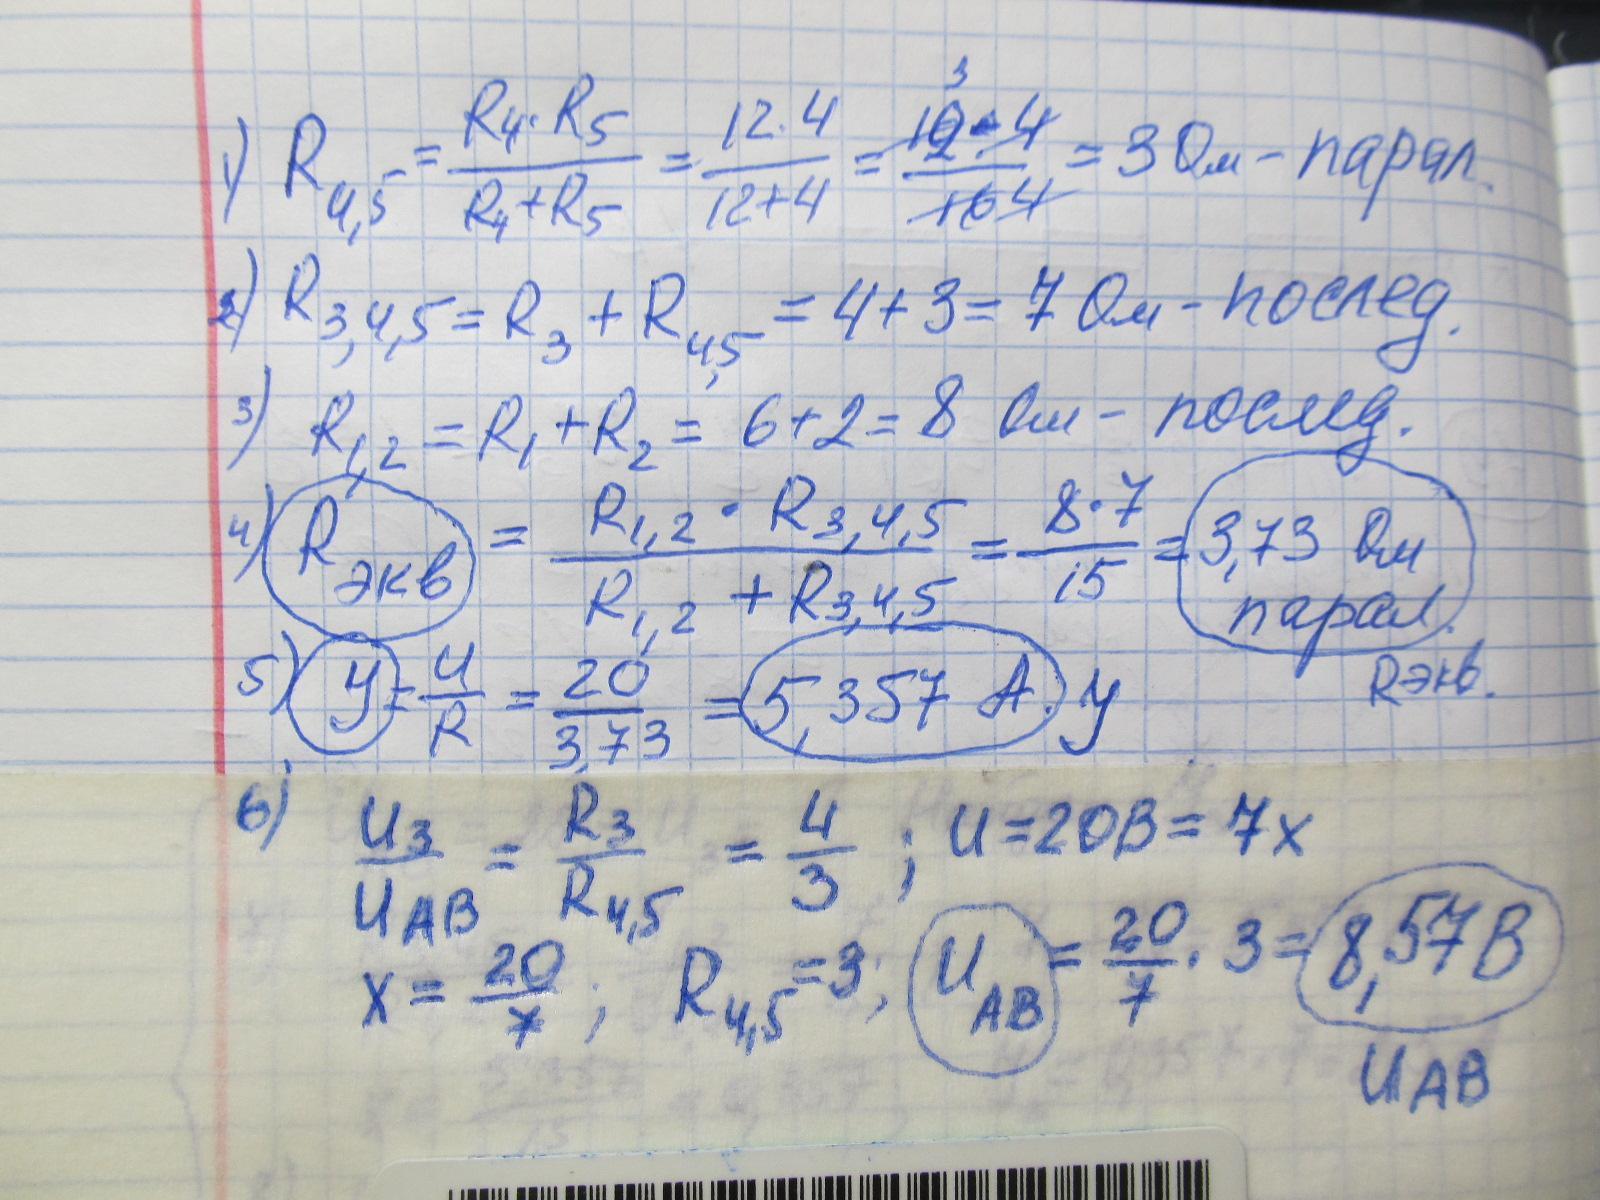 1) R4,5 = R4·R5 / R4+R5 = 12·4 / 12+4 = 12·4 / 16 4 = 3 Ом - парал.
3
2) R3,4,5 = R3 + R4,5 = 4+3 = 7 Ом - послед.
3) R1,2 = R1 + R2 = 6+2 = 8 Ом - послед.
4) Rэкв = R1,2 · R3,4,5 / R1,2 + R3,4,5 = 8·7 / 15 = 3,73 Ом парал.
Rэкв.
5) У = U / R = 20 / 3,73 = 5,357 А. У
6) U3 / UAB = R3 / R4,5 = 4 / 3 ; U = 20В = 7x
x = 20 / 7 ; R4,5 = 3; UAB = 20 / 7 · 3 = 8,57 В
UAB